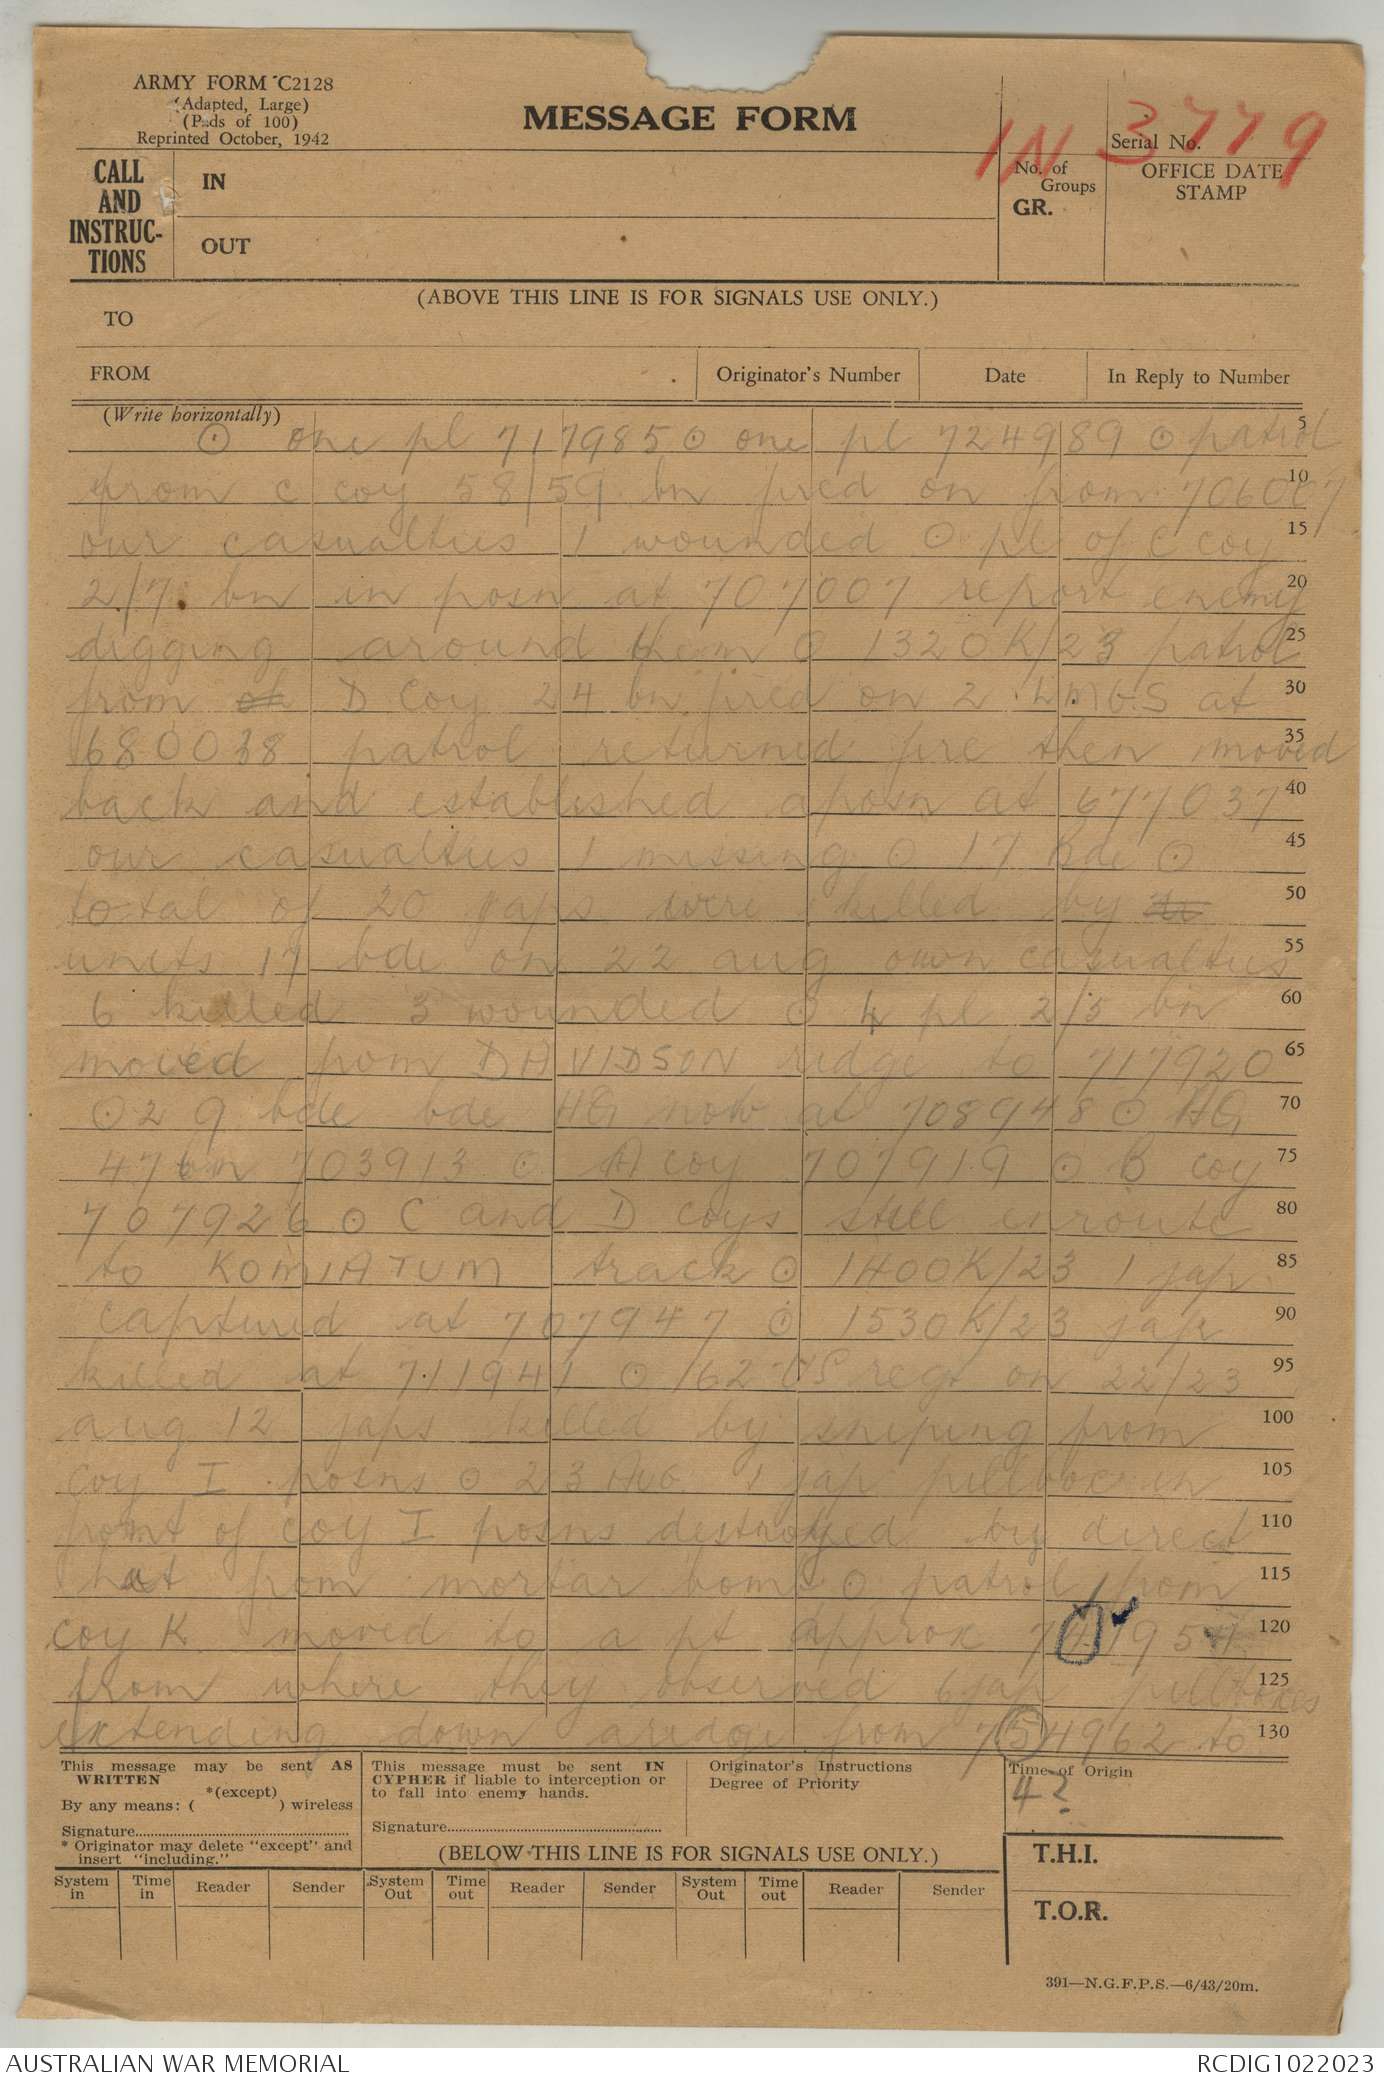 ARMY FORM C2128
(Adapted, Large)
(Pads of 100)
Reprinted October, 1942
MESSAGE FORM
IN 3779
Serial No.
CALL AND INSTRUC-TIONS
IN
OUT
No. of Groups
GR.
OFFICE DATE STAMP
(ABOVE THIS LINE IS FOR SIGNALS USE ONLY.)
TO
FROM
Originator's Number
Date
In Reply to Number
(Write horizontally)
⊙ one pl 717985 ⊙ one pl 724989 ⊙ patrol 5
from C coy 58/59 bn fired on from 706007 10
our casualties 1 wounded ⊙ pl of C coy 15
2/7 bn in posn at 707007 report enemy 20
digging around them ⊙ 1320K/23 patrol 25
from D Coy 24 bn fired on 2 LMGS at 30
680038 patrol returned fire then moved 35
back and established a posn at 677037 40
our casualties 1 missing ⊙ 17 Bde ⊙ 45
total of 20 japs were killed by 50
units 17 bde on 22 aug own casualties 55
6 killed 3 wounded ⊙ 4 pl 2/5 bn 60
moved from DAVIDSON ridge to 717920 65
⊙ 29 bde bde HQ now at 708948 ⊙ HQ 70
47 bn 703913 ⊙ A coy 707919 ⊙ B coy 75
707926 ⊙ C and D coys still enroute 80
to KOMIATUM track ⊙ 1400K/23 1 jap 85
captured at 707947 ⊙ 1530K/23 jap 90
killed at 711941 ⊙ 162 US regt on 22/23 95
aug 12 japs killed by sniping from 100
coy I posns ⊙ 23 Aug 1 jap pillbox in 105
front of coy I posns destroyed by direct 110
hit from mortar bomb ⊙ patrol from 115
coy K moved to a pt approx 120
from where they observed 6 jap pillboxes 125
extending down a ridge from 754962 to 130
4?
This message may be sent AS WRITTEN
*(except)
By any means: ( ) wireless
Signature
* Originator may delete "except" and insert "including."
This message must be sent IN CYPHER if liable to interception or to fall into enemy hands.
Signature
Originator's Instructions
Degree of Priority
Time of Origin
(BELOW THIS LINE IS FOR SIGNALS USE ONLY.)
T.H.I.
T.O.R.
System in
Time in
Reader
Sender
System Out
Time out
Reader
Sender
System Out
Time out
Reader
Sender
391—N.G.F.P.S.—6/43/20m.
AUSTRALIAN WAR MEMORIAL
RCDIG1022023